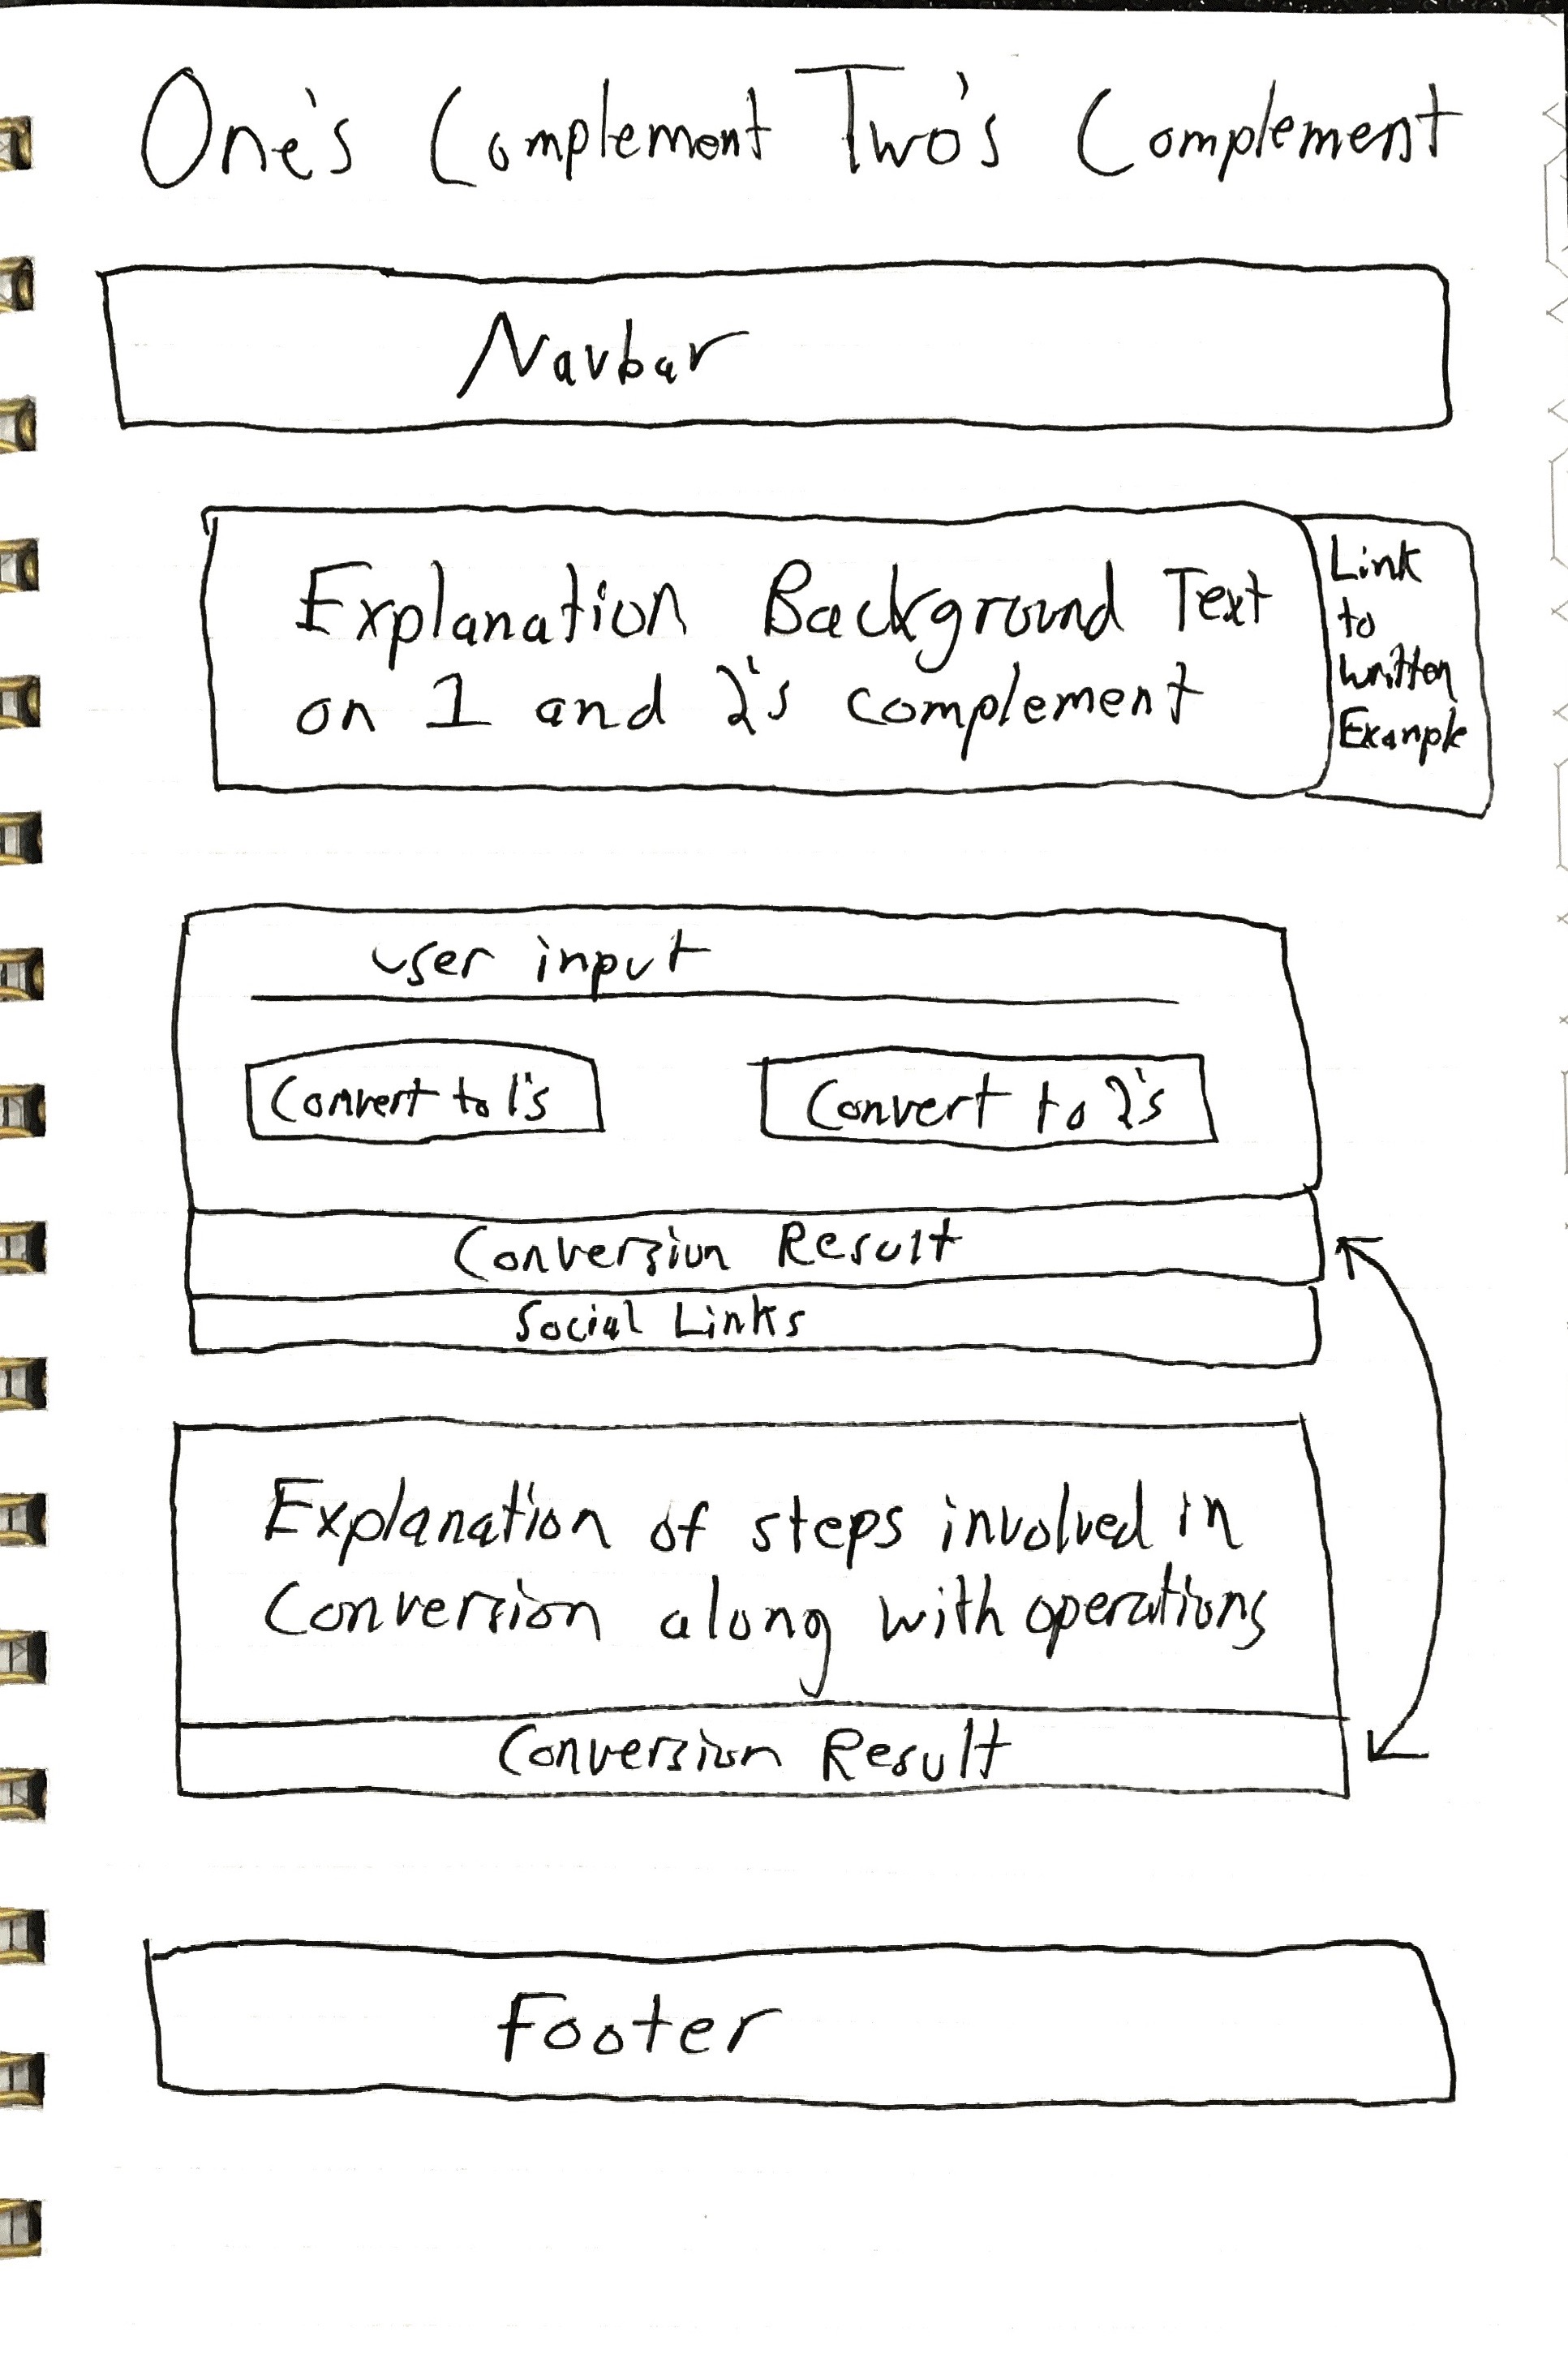 One's Complement Two's Complement
Navbar
Explanation Background Text
on 1 and 2's complement
Link
to
written
Example
user input
Convert to 1's
Convert to 2's
Conversion Result
Social Links
Explanation of steps involved in
Conversion along with operations
Conversion Result
Footer